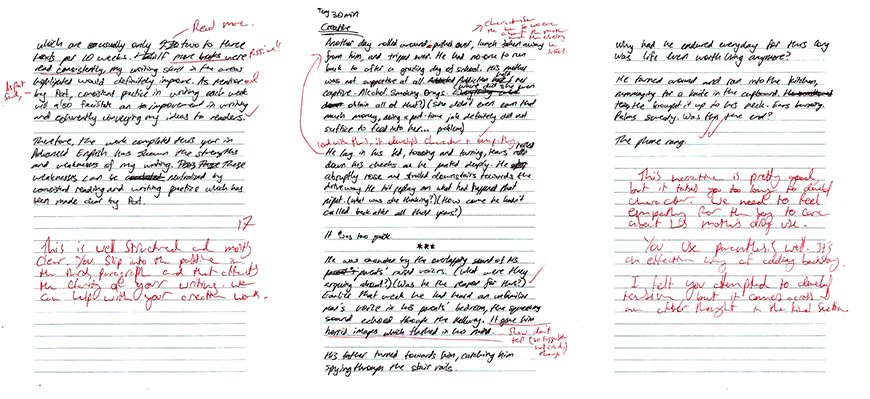 Read more.
which are usually only two to three
texts per 10 weeks. If more books were
read consistently, my writing skill in the areas
Passive!!
highlighted would definitely improve. As mentioned
by Port, consistent practice in writing each week
will also facilitate an improvement in writing
and coherently conveying my ideas to readers.
Therefore, the work completed this year in
Advanced English has shown the strengths
and weaknesses of my writing. These
weaknesses can be neutralised by
consistent reading and writing practice which has
been made clear by Port.
17
This is well structured and mostly
clear. You slip into the passive in
the third paragraph and that affects
the clarity of your writing. We
can help with your creative work.
Try 30 min
Creative
Another day rolled around, pushed over, lunch taken away
from him, and tripped over. He had no-one to run
back to after a grueling day at school. His mother
was not supportive at all
captive. Alcohol. Smoking. Drugs. (Where did she even
obtain all of that?) (She didn't even earn that
much money, being a part-time job definitely did not
suffice to feed into her... problem)
Lead with this, it develops character + empathy
He lay in his bed, tossing and turning, tears rolled
down his cheeks as he panted deeply. He
abruptly rose and trailed downstairs towards the
driveway. He hit replay on what had happened that
night. (What was she thinking?) (How come he hadn't
called back after all these years?)
It was too quick.
***
He was awoken by the overlapping sound of his
parents' raised voices. (What were they
arguing about?) (Was he the reason for this?)
Earlier that week he had heard an unfamiliar
man's voice in his parents' bedroom, the squeaking
sound echoed through the hallway. It gave him
horrid images which flashed in his mind.
Show don't
tell
His father turned towards him, catching him
spying through the stair rails.
Why had he endured everyday for this long
was life even worth living anymore?
He turned around and ran into the kitchen,
rummaging for a knife in the cupboard.
He brought it up to his neck. Ears burning.
Palms sweaty. Was this the end?
The phone rang.
This narrative is pretty good
but it takes you too long to develop
character. We need to feel
empathy for the boy to care
about his mother's drug use.
You use parenthesis well. It's
an effective way of adding backstory.
I felt you attempted to develop
tension, but it comes across as
an after thought in the final section